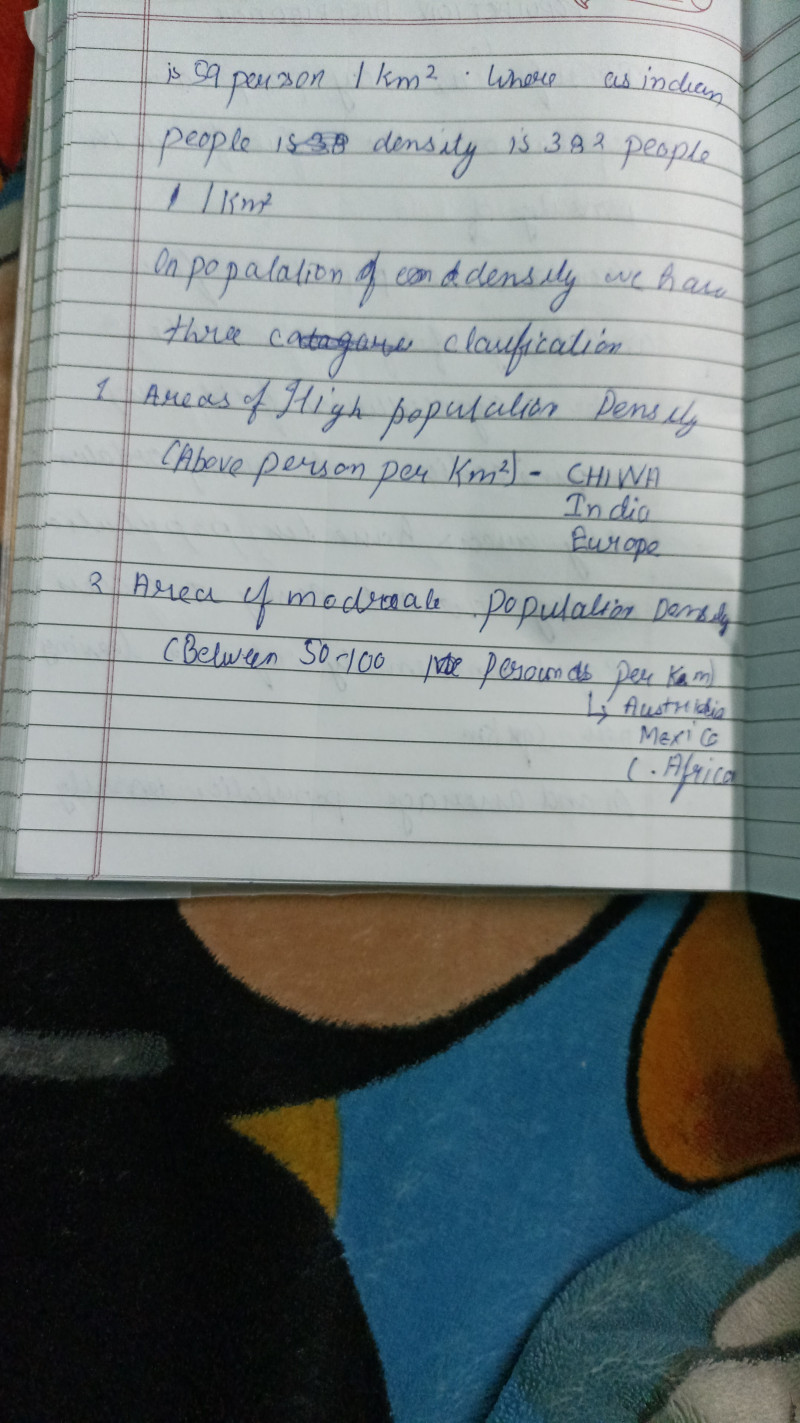 is 59 person / km². Where as indian
people is density is 382 people
/ km²
On popalation of density we have
three clasification
1 Areas of High population Density
(Above person per Km²) - CHINA
India
Europe
2 Area of modreate population Density
(Between 50-100 persounds per Km)
↳ Austrialia
Mexico
C. Africa